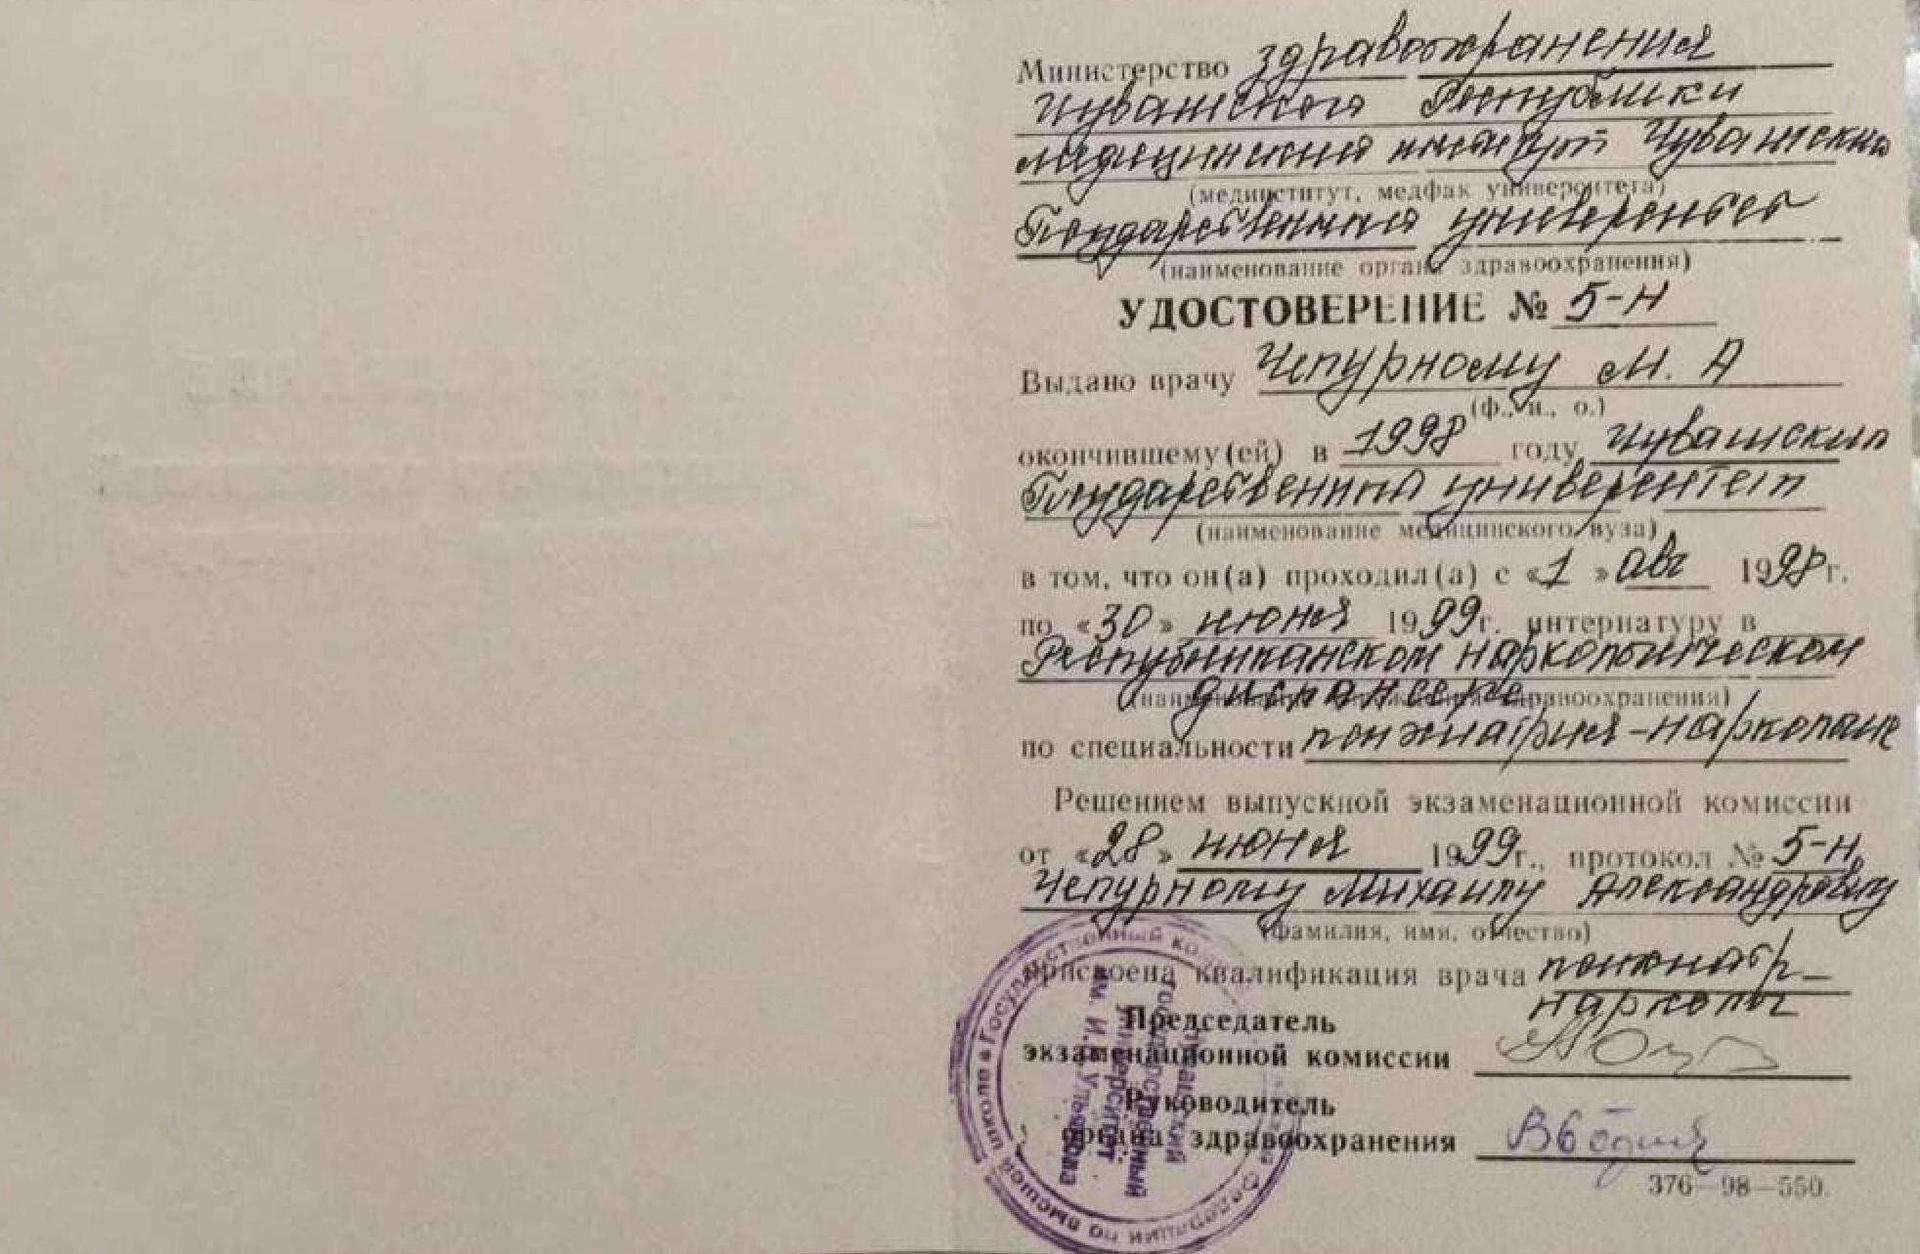 Министерство здравоохранения
Чувашской Республики
медицинский институт Чувашский
(мединститут, медфак университета)
Государственный университет
(наименование органа здравоохранения)
УДОСТОВЕРЕНИЕ № 5-н
Выдано врачу Чепурному М. А
(ф., и., о.)
окончившему(ей) в 1998 году Чувашский
Государственный университет
(наименование медицинского вуза)
в том, что он(а) проходил(а) с «1» авг 1998г.
по «30» июня 1999г. интернатуру в
Республиканском наркологическом
диспансере
(наименование учреждения здравоохранения)
по специальности психиатрия-нарколог
Решением выпускной экзаменационной комиссии
от «28» июня 1999г., протокол № 5-н
Чепурному Михаилу Александровичу
(фамилия, имя, отчество)
присвоена квалификация врача психиатр-
нарколог
Председатель
экзаменационной комиссии
Руководитель
органа здравоохранения
376—98—550.
Чувашский
государственный
университет
им. И. Н. Ульянова